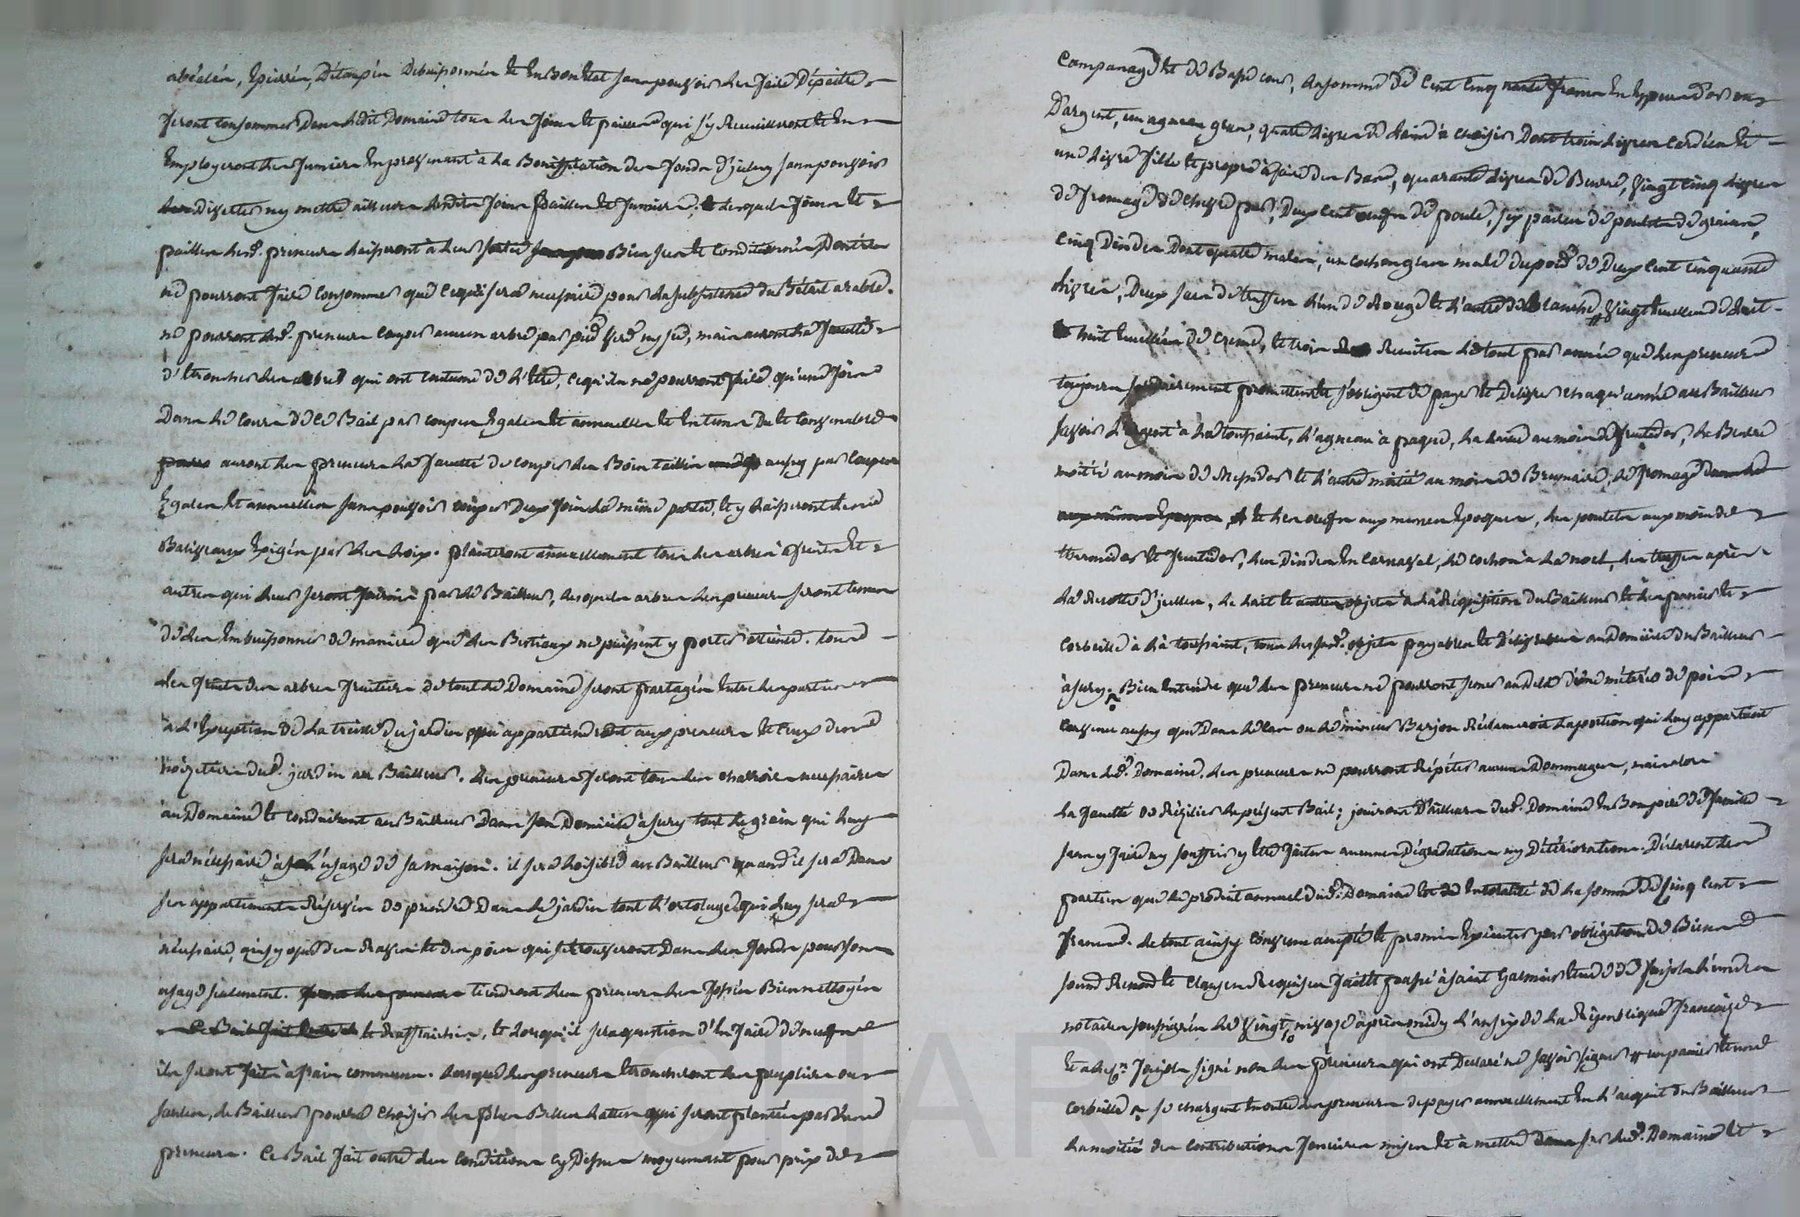 abéalés, Epierrés, Détaupés Debuisonnés et en bon état sans pouvoir les faire Dépaitre
seront consommés Dans ledit Domaine tous les foins et pailles qui s'y recueilleront et en
employeront les fumiers en provenant à la Bonification des fonds d'iceluy sans pouvoir
divertir ny mettre ailleurs lesdits foins pailles et fumiers, lesquels foins et
pailles lesd. preneurs laisseront à leur sortie Bien sur et conditionnés Dont ils
ne pourront faire consommer que ce qui sera necessaire pour la subsistence du Bétail arable.
ne pourront lesd. preneurs couper aucun arbre par pied verd ny sec, mais auront la faculté
d'étroncher les arbres qui ont coutume de l'être, ce qu'ils ne pourront faire qu'une fois
Dans le cours de ce Bail par coupes Egales et annuelles et en tems Du et convenable
auront les preneurs la faculté de couper les Bois taillis aussy par coupes
Egales et annuelles sans pouvoir couper Deux fois la même partie, et y laisseront les
Baliveaux Exigés par les loix. planteront annuellement tous les arbres à fruits et
autres qui leur seront fournis par le Bailleur, lesquels arbres les preneurs seront tenus
de les Embuissonner de maniere que les Bestiaux ne puissent y porter atteinte. tous
les fruits des arbres fruitiers de tout le Domaine seront partagés entre les parties
à l'Exception de la treille du jardin qui appartiendront aux preneurs et ceux des
noizetiers dud. jardin au Bailleur. les preneurs feront tous les charrois necessaires
au Domaine et conduiront au Bailleur Dans son Domicile à sury tout le grain qui luy
sera nécessaire à l'usage de sa maison. il sera loisible au Bailleur quand il sera Dans
ses appartements Réservés de prendre Dans le jardin tout l'ortolage qui luy sera
nécessaire, ainsy que des raves et des pois qui se trouveront Dans les fonds pour son
usage seulement. tiendront les preneurs les fossés Bien nettoyés
et rafraichis, et lorsqu'il sera question d'en faire de neufs
ils seront faits à frais communs. lorsque les preneurs étroncheront les peupliers ou
saules, le Bailleur pourra choisir les plus Belles lattes qui seront plantées par les
preneurs. Ce Bail fait outre les conditions cy Dessus moyennant pour prix de
Companage et de Basse cour, la somme de Cent Cinquante francs en Especes d'or ou
D'argent, un agneau gras, quatre livres de laine à choisir Dont trois livres cardées et
une livre filée et propre à faire des Bas, quarante livres de Beurre, Vingt Cinq livres
de fromage de chevre pur, Deux cent œufs de poule, six paires de poulets de grains,
Cinq Dindes Dont quatre males, un cochon gras male du poids de Deux Cent cinquante
livres, Deux sacs de truffes l'un de Rouge et l'autre de Blanche, Vingt écuellées de lait
huit écuellées de crème, et trois Recuites le tout par année que les preneurs
toujours solidairement promettent et s'obligent de payer et Délivrer chaque année au Bailleur
savoir l'argent à la toussaint, l'agneau à paque, la laine au mois de fructidor, le Beurre
moitié au mois de Messidor et l'autre moitié au mois de Brumaire, le fromage
et les œufs aux memes Epoques, les poulets aux mois de
thermidor et fructidor, les Dindes En Carnaval, le cochon à la noel, les truffes après
la Recolte d'icelles, le lait et autres objets à la Réquisition du Bailleur et les paniers et
corbeille à la toussaint, tous lesquels objets payables et Délivrables au Domicile du Bailleur
à sury. Bien Entendu que les preneurs ne pourront semer au dela d'une méterée de pois
convenu aussy que Dans le cas ou le mineur Barjon Réclameroit la portion qui luy appartient
Dans led. Domaine, les preneurs ne pourront Répéter aucuns Dommages, mais alors
la faculté de Résilier le présent Bail; jouiront D'ailleurs dud. Domaine En Bons peres de famille
sans y faire ny souffrir y être faites aucunes Dégradations ny Détériorations. Déclarent les
parties que le produit annuel dud. Domaine est de la somme de Cinq Cent
francs. le tout ainsy convenu accepté et promis Executer par obligation de Biens
soumis Renoncé et Clauses Requises fait et passé à saint Galmier
notaire soussigné le Vingt, après midy l'an six de la République française
Et a led. signé non les preneurs qui ont Declaré ne savoir signer un panier et une
corbeille se chargent en outre les preneurs de payer annuellement En l'acquit du Bailleur
la moitié des contributions foncieres mises et à mettre sur led. Domaine et